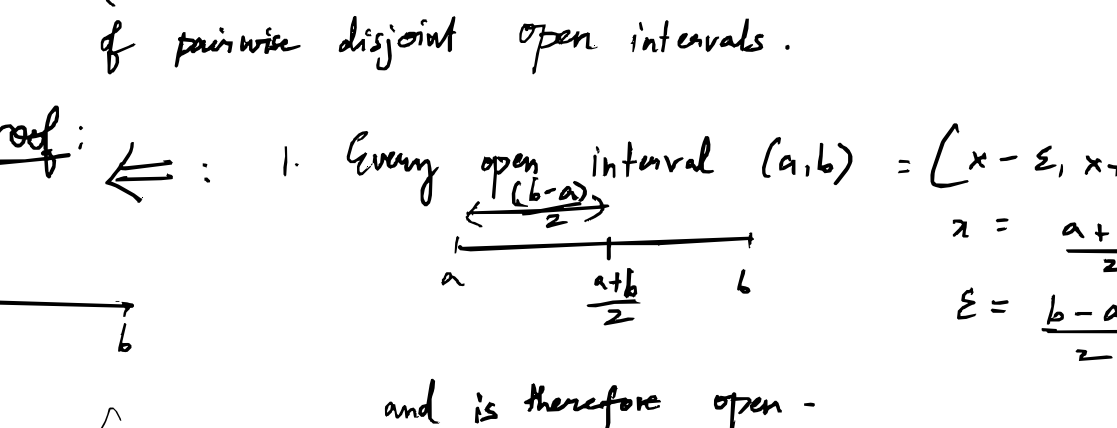 of pairwise disjoint open intervals.
roof: ⇐ : 1. Every open interval (a,b) = (x - ε, x+
(b-a)/2
x = a+/2
a (a+b)/2 b
ε = b-a/2
b
and is therefore open -